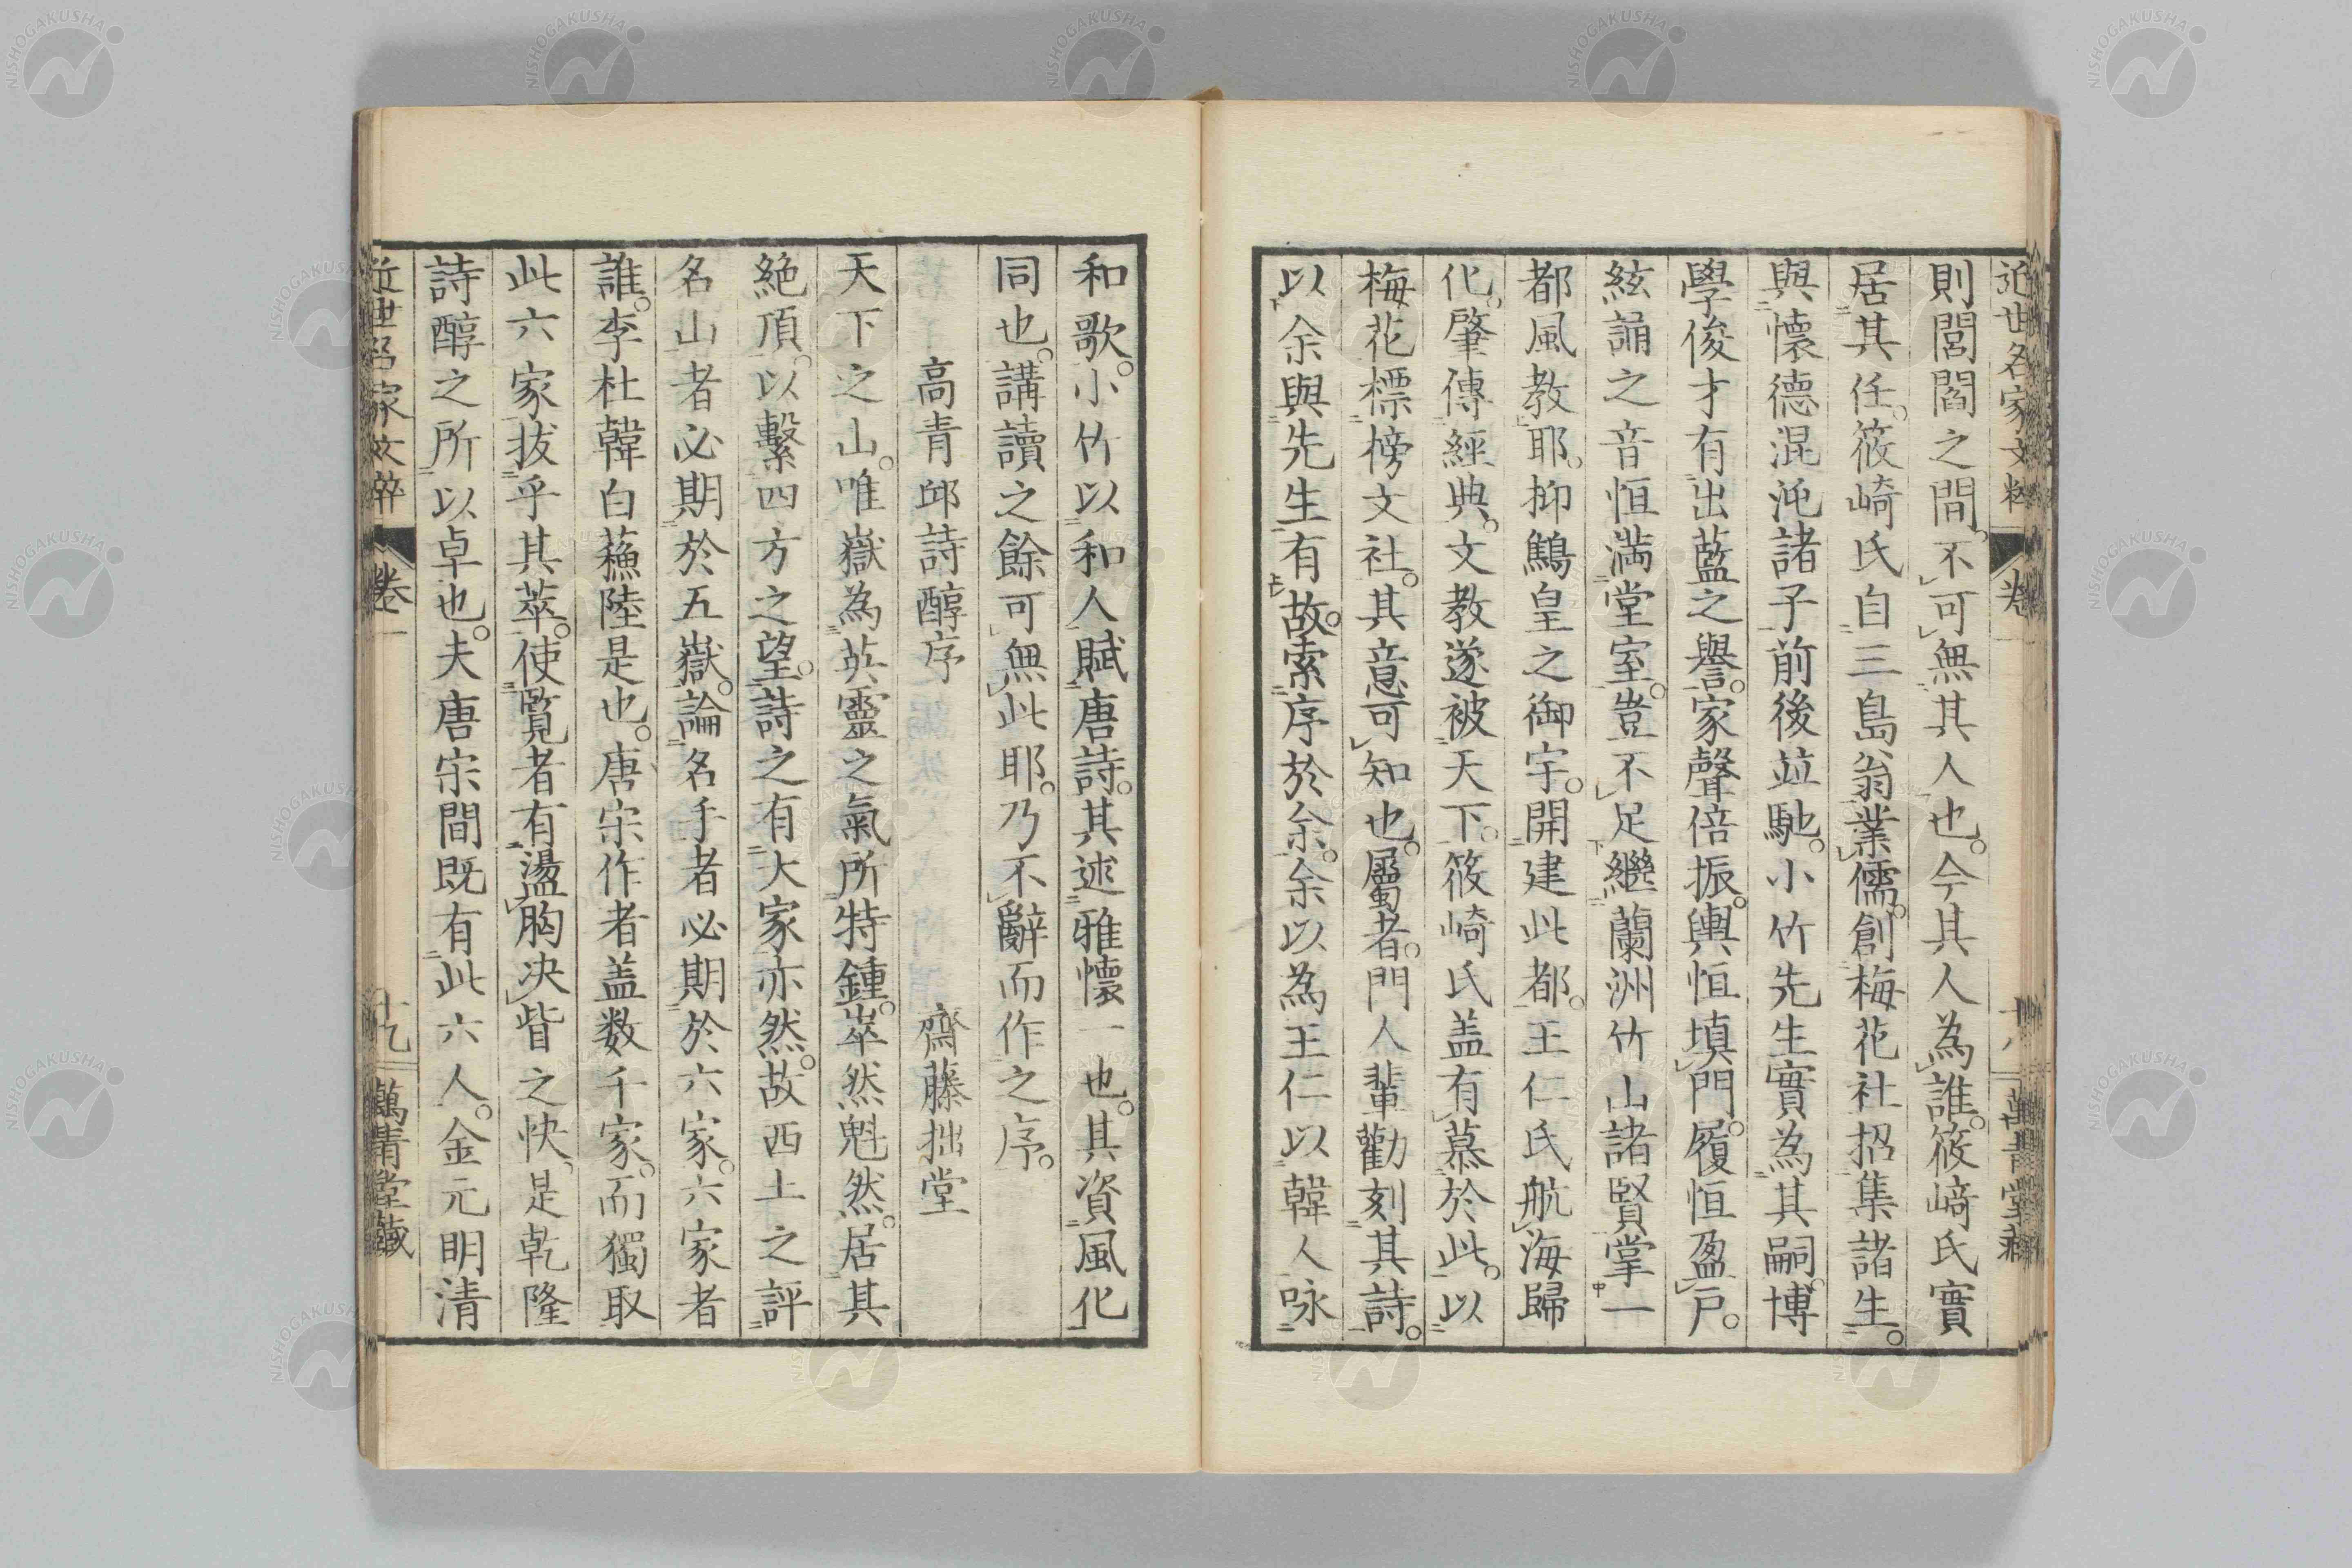 近世名家文粹 卷一 十八 萬青堂藏
則閭閻之間。不可無其人也。今其人為誰。筱﨑氏實
居其任。筱崎氏自三島翁業儒。創梅花社招集諸生。
與懷德混沌諸子前後並馳。小竹先生實為其嗣。博
學俊才有出藍之譽。家聲倍振。輿恒塡門。履恒盈戶。
絃誦之音恒滿堂室。豈不足繼蘭洲竹山諸賢掌一
都風教耶。抑鷦皇之御宇。開建此都。王仁氏航海歸
化。肇傳經典。文教遂被天下。筱崎氏盖有慕於此。以
梅花標榜文社。其意可知也。屬者。門人輩勸刻其詩。
以余與先生有故。索序於余。余以為王仁以韓人咏
和歌。小竹以和人賦唐詩。其述雅懷一也。其資風化
同也。講讀之餘可無此耶。乃不辭而作之序。
高青邱詩醇序 齋藤拙堂
天下之山。唯嶽為英靈之氣所特鍾。崒然魁然。居其
絶頂。以繫四方之望。詩之有大家亦然。故西土之評
名山者必期於五嶽。論名手者必期於六家。六家者
誰。李杜韓白蘓陸是也。唐宋作者盖数千家。而獨取
此六家。拔乎其萃。使覽者有盪胸决眥之快。是乾隆
詩醇之所以卓也。夫唐宗間既有此六人。金元明清
近世名家文粹 卷一 十九 萬青堂藏
NISHOGAKUSHA